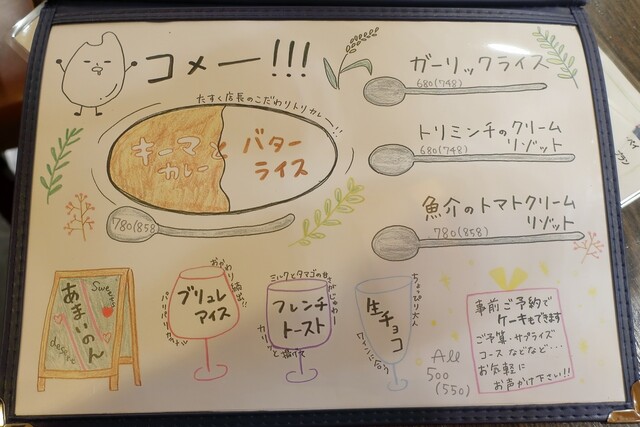 コメー!!!
たすく店長のこだわりトリカレー!!
キーマと
カレー
バター
ライス
780(858
ガーリックライス
680(748)
トリミンチのクリーム
リゾット
680(748)
魚介のトマトクリーム
リゾット
780(858)
Sweet
あまいのん
ブリュレ
アイス
おかわり続出!!
ミルクとタマゴの
フレンチ
トースト
ちょっぴり大人
生チョコ
All
500
(550)
事前ご予約で
ケーキもできます
ご予算・サプライズ
コースなどなど…
お気軽に
お声かけ下さい!!